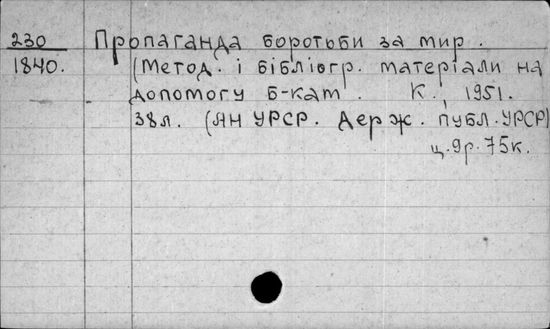 230
1840.
Пропаганда боротьби за мир.
(Метод. і бібліогр. матеріали на
допомогу б-кам. К., 1951.
38л. (АН УРСР. Держ. публ. УРСР)
ц. 9р. 75к.